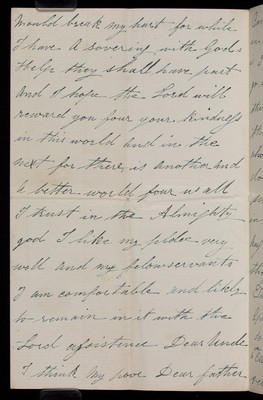 would break my hart for while
I have A sovering with Gods
Help they shall have part
And I hope the Lord will
reward you four your kindness
in this world and in the
next for there is another and
A better world four us all
I trust in the Almighty
god I like my place very
well and my felowservants
I am comfortable and likly
to remain in it with the
Lord asistence Dear Uncle
I think my poor Dear father